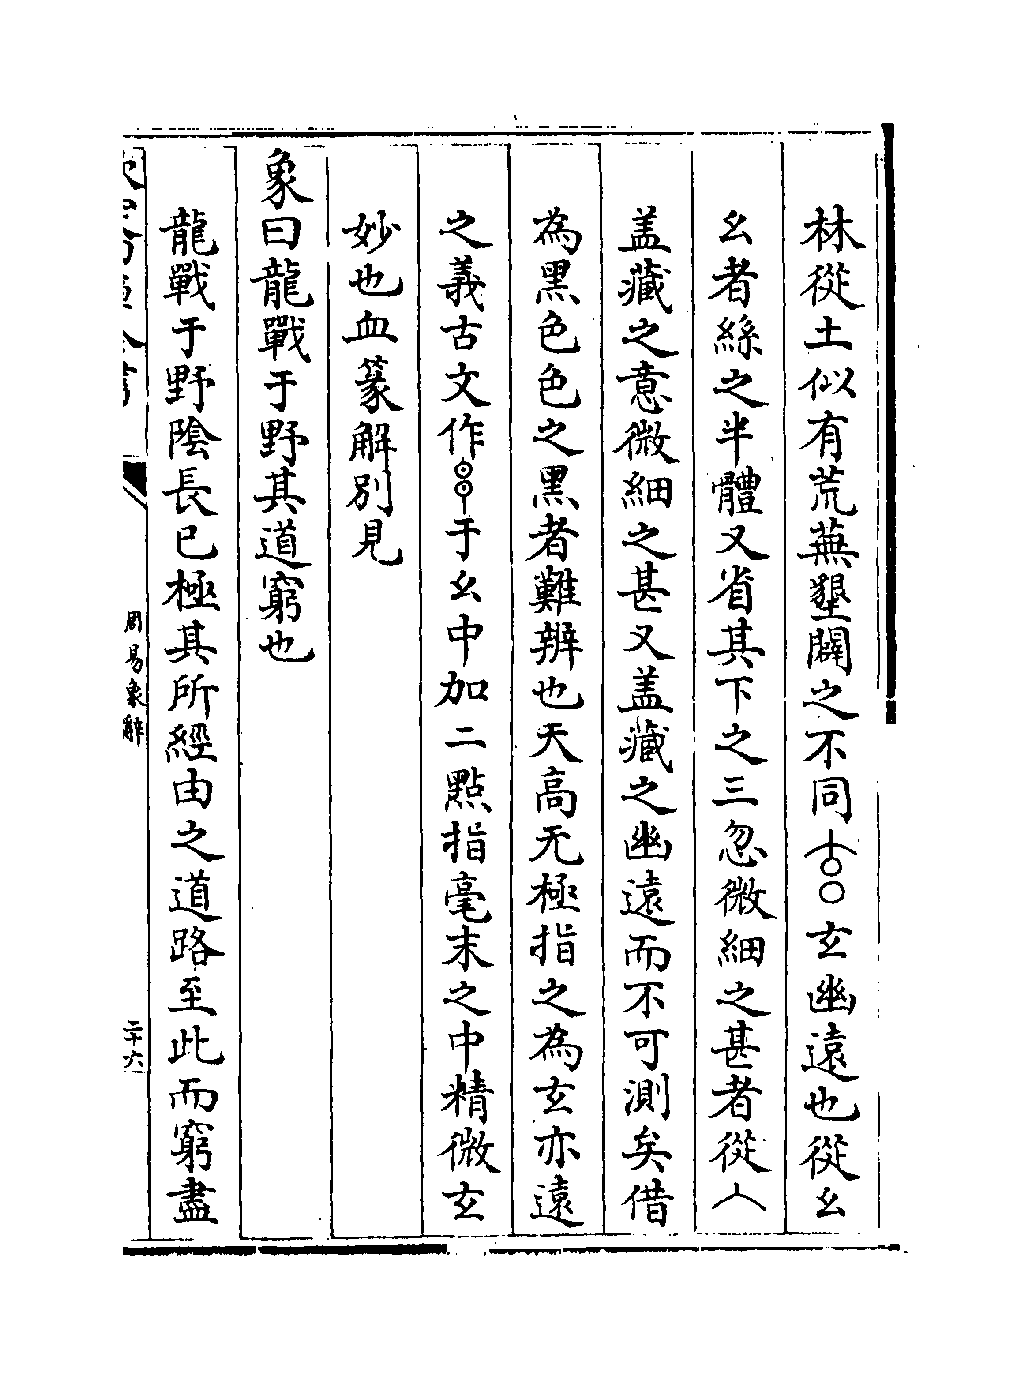 林從土似有荒蕪墾闢之不同玄幽遠也從幺
幺者絲之半體又省其下之三忽微細之甚者從𠆢
盖藏之意微細之甚又盖藏之幽遠而不可測矣借
為黑色色之黑者難辨也天高无極指之為玄亦遠
之義古文作于幺中加二點指毫末之中精微玄
妙也血篆解別見
象曰龍戰于野其道窮也
龍戰于野陰長已極其所經由之道路至此而窮盡
周易象辭
二十六